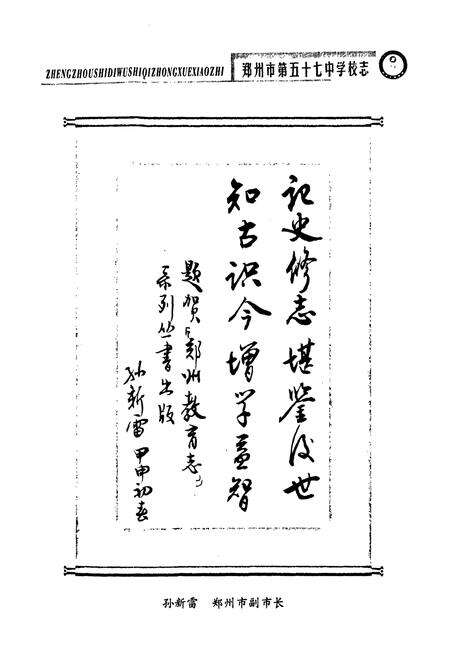 ZHENGZHOUSHIDIWUSHIQIZHONGXUEXIAOZHI
郑州市第五十七中学校志
记史修志堪鉴后世
知古识今增学益智
题贺《郑州教育志》
系列丛书出版
孙新雷 甲申初春
孙新雷 郑州市副市长